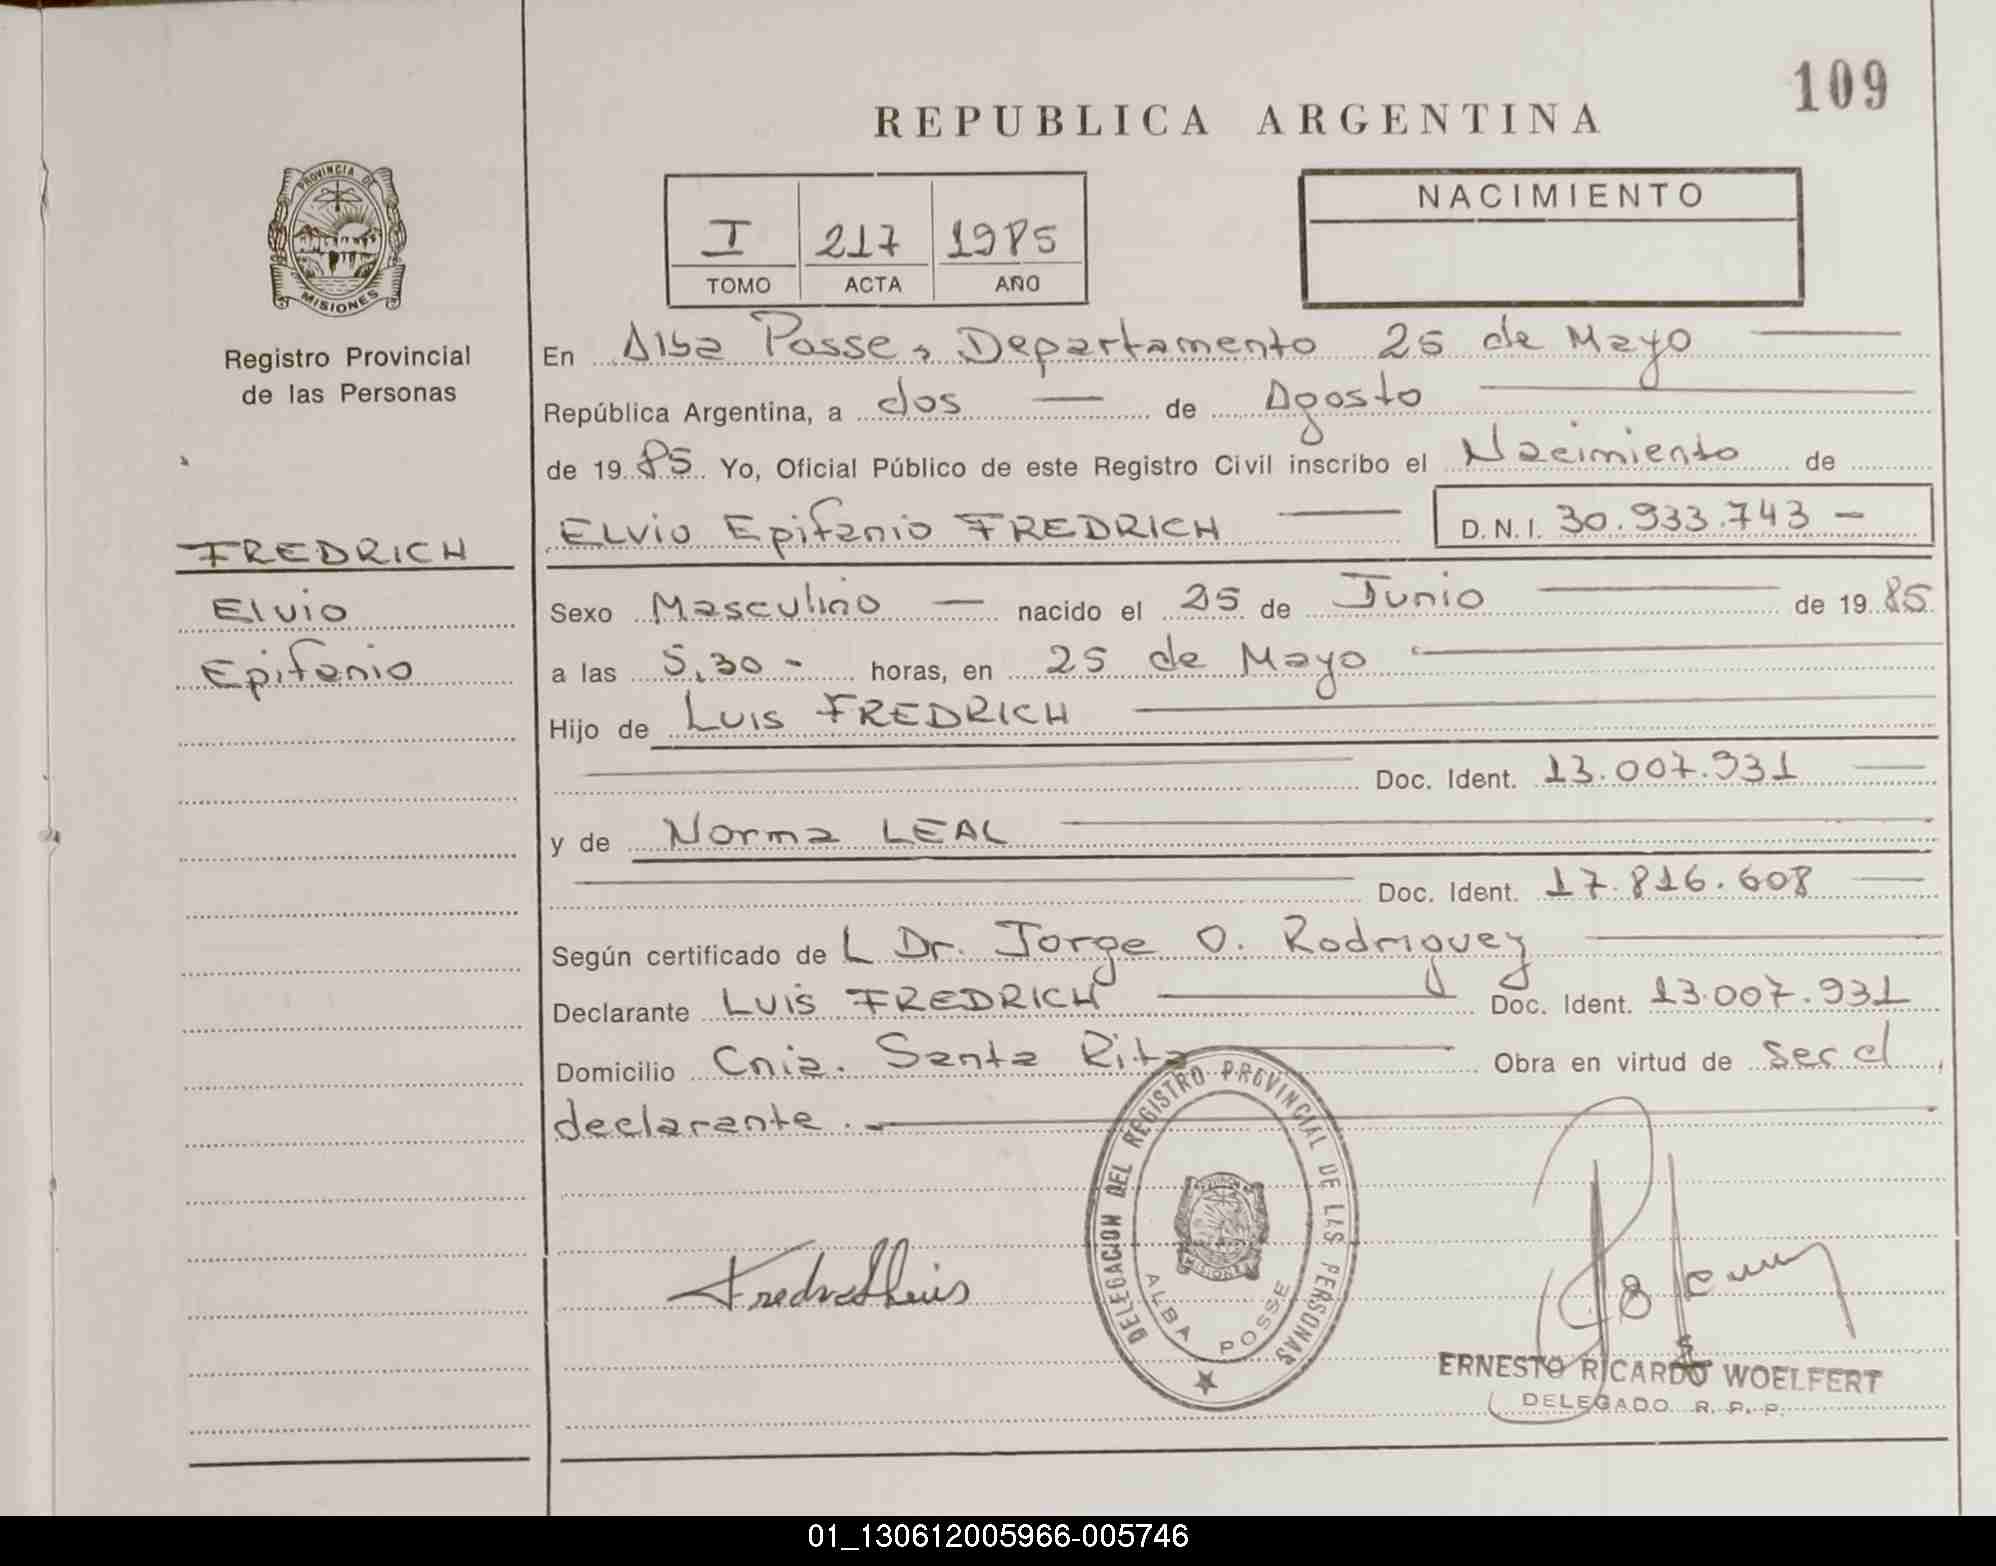 109
REPUBLICA ARGENTINA
PROVINCIA DE
MISIONES
Registro Provincial
de las Personas
I 217 1985
TOMO ACTA AÑO
NACIMIENTO
En Alba Posse, Departamento 25 de Mayo
República Argentina, a dos de Agosto
de 1985 Yo, Oficial Público de este Registro Civil inscribo el Nacimiento de
ELVIO Epifanio FREDRICH D.N.I. 30.933.743 -
FREDRICH
Elvio
Epifanio
Sexo Masculino nacido el 25 de Junio de 1985
a las 5,30 - horas, en 25 de Mayo
Hijo de Luis FREDRICH
Doc. Ident. 13.007.931
y de Norma LEAL
Doc. Ident. 17.816.608
Según certificado de L Dr. Jorge O. Rodriguez
Declarante LUIS FREDRICH Doc. Ident. 13.007.931
Domicilio Cnia. Santa Rita Obra en virtud de ser el
declarante.
DELEGACION DEL REGISTRO PROVINCIAL DE LAS PERSONAS
MISIONES
ALBA POSSE
ERNESTO RICARDO WOELFERT
DELEGADO R. P. P.
01_130612005966-005746